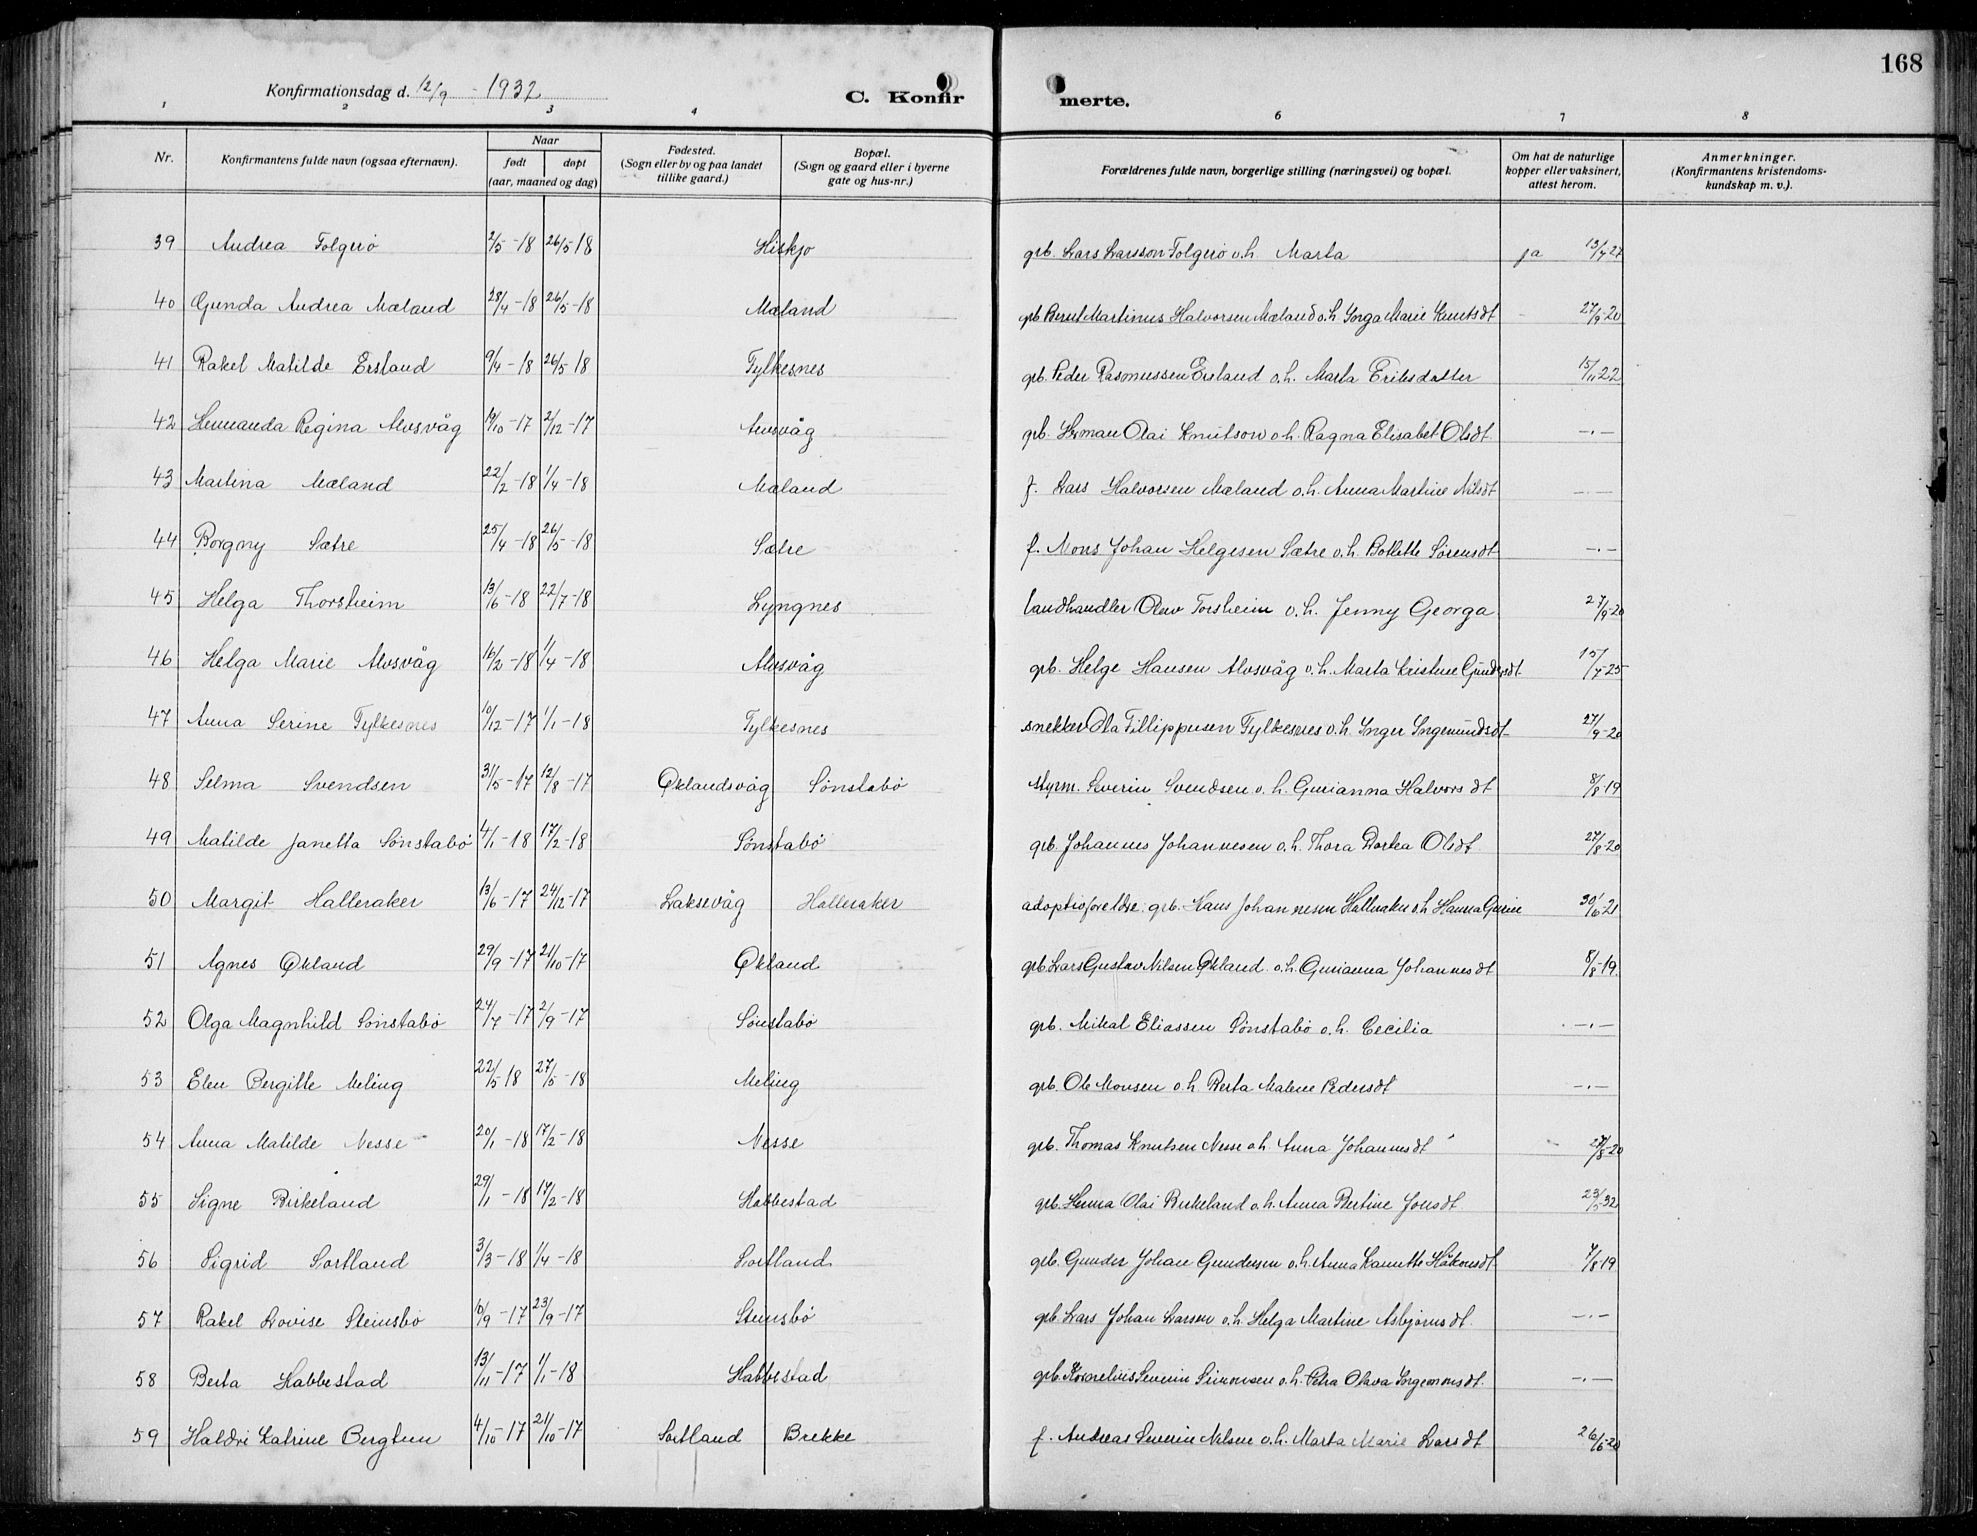 168
Konfirmationsdag d. 12/9 - 1932
C. Konfirmerte.
1 2 3 4 6 7 8
Nr. | Konfirmantens fulde navn (ogsaa efternavn). | Naar født døpt (aar, maaned og dag) | Fødested. (Sogn eller by og paa landet tillike gaard.) | Bopæl. (Sogn og gaard eller i byerne gate og hus-nr.) | Forældrenes fulde navn, borgerlige stilling (næringsvei) og bopæl. | Om hat de naturlige kopper eller vaksinert, attest herom. | Anmerkninger. (Konfirmantens kristendomskundskap m. v.).
39 Andrea Folgerø 2/5-18 26/5-18 Hiskjo grb. Lars Larsson Folgerø o.h. Marta ja 13/7-27
40 Gunda Andrea Mæland 28/4-18 26/5-18 Mæland grb. Bernt Martinus Halvorsen Mæland o.h. Inga Marie Knutsdt 27/9-20
41 Rakel Matilde Eisland 9/4-18 26/5-18 Fylkesnes grb. Peder Rasmussen Eisland o.h. Marta Eriksdatter 15/11 22
42 Hermanda Regina Alvsvåg 19/10-17 2/12-17 Alvsvåg grb. Herman Olai Knutson o.h. Ragna Elisabet Olsdt. -.-
43 Martina Mæland 22/2-18 1/4-18 Mæland f. Lars Halvorsen Mæland o.h. Anna Martine Nilsdt -.-
44 Borgny Sætre 25/4-18 26/5-18 Sætre f. Mons Johan Helgesen Sætre o.h. Bollette Sørensdt -.-
45 Helga Thorsheim 13/6-18 22/7-18 Lyngnes landhandler Olav Torsheim o.h. Jenny Georga 27/9-20
46 Helga Marie Alvsvåg 16/2-18 1/4-18 Alvsvåg grb. Helge Hansen Alvsvåg o.h. Marta Kristine Gundersdt. 15/7-25
47 Anna Serine Fylkesnes 10/12-17 1/1-18 Fylkesnes snekker Ola Fillippusen Fylkesnes o.h. Inger Ingemundsdt. 27/9-20
48 Selma Svendsen 31/5-17 12/8-17 Økland​svåg Sønstabø styrm. Severin Svendsen o.h. Gurianna Halvorsdt 8/8-19
49 Matilde Janetta Sønstabø 4/1-18 17/2-18 Sønstabø grb. Johannes Johannesen o.h. Thora Dortea Olsdt. 27/8-20
50 Margit Halleraker 13/6-17 24/12-17 Laksevåg Halleraker adoptivforeldre: grb. Hans Johannesen Halleraker o.h. Hanna Gurine 30/6-21
51 Agnes Økland 29/9-17 21/10-17 Økland grb. Lars Gustav Nilsen Økland o.h. Gurianna Johannesdt 8/8-19
52 Olga Magnhild Sønstabø 24/7-17 2/9-17 Sønstabø grb. Mikal Eliassen Sønstabø o.h. Cecilia -.-
53 Elen Bergitte Meling 22/5 18 27/5-18 Meling grb. Ole Monsen o.h. Berta Malene Pedersdt -.-
54 Anna Matilde Nesse 20/1-18 17/2-18 Nesse grb. Thomas Knutsen Nesse o.h. Anna Johannesdt 27/8-20
55 Signe Birkeland 29/1-18 17/2-18 Habbestad grb. Olai Birkeland o.h. Anna Bertine Jonsdt 23/5-32
56 Sigrid Sortland 3/3-18 1/4-18 Sortland grb. Gunder Johan Gundersen o.h. Anna Håkonsdt 7/8 19
57 Rakel Lovise Steinsbø 10/9-17 23/9-17 Steinsbø grb. Lars Johan Larsen o.h. Helga Martine Asbjørnsdt. -.-
58 Berta Habbestad 13/11-17 1/1-18 Habbestad grb. Kornelius Severin Simonsen o.h. Petra Olava Ingemonsdt. -.-
59 Haldri Katrine Bergtun 4/10-17 21/10-17 Sortland Brekke f. Andreas Severin Nilsen o.h. Marta Marie Larsdt 26/6-20